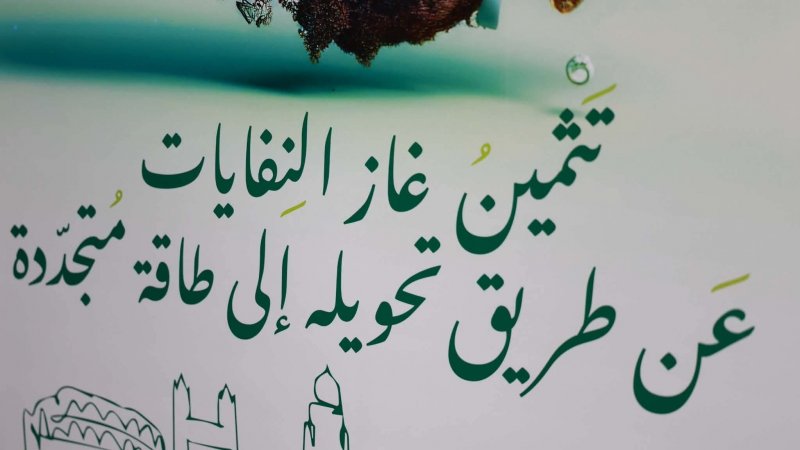 تَثْمينُ غاز النِفايات
عَن طريق تحويله إلى طاقة مُتجدّدة